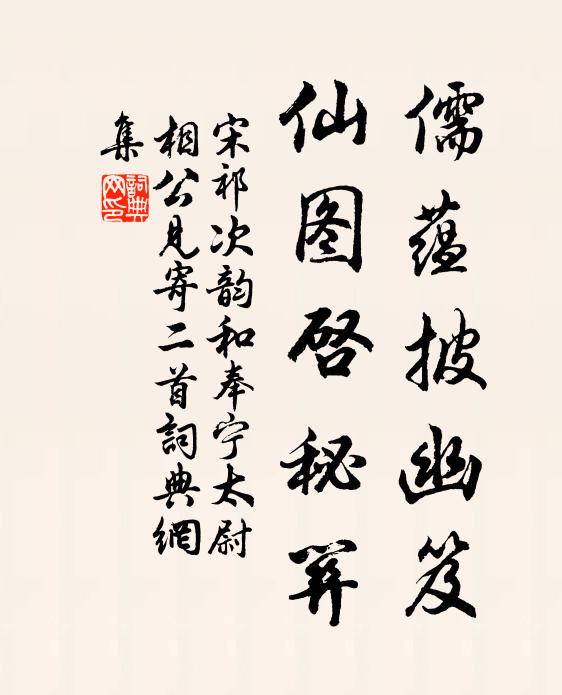 儒蕴披幽笈
仙图启秘筭
宋祁次韵和奉宁太尉
相公见寄二首詞典網
集
詞典
网印